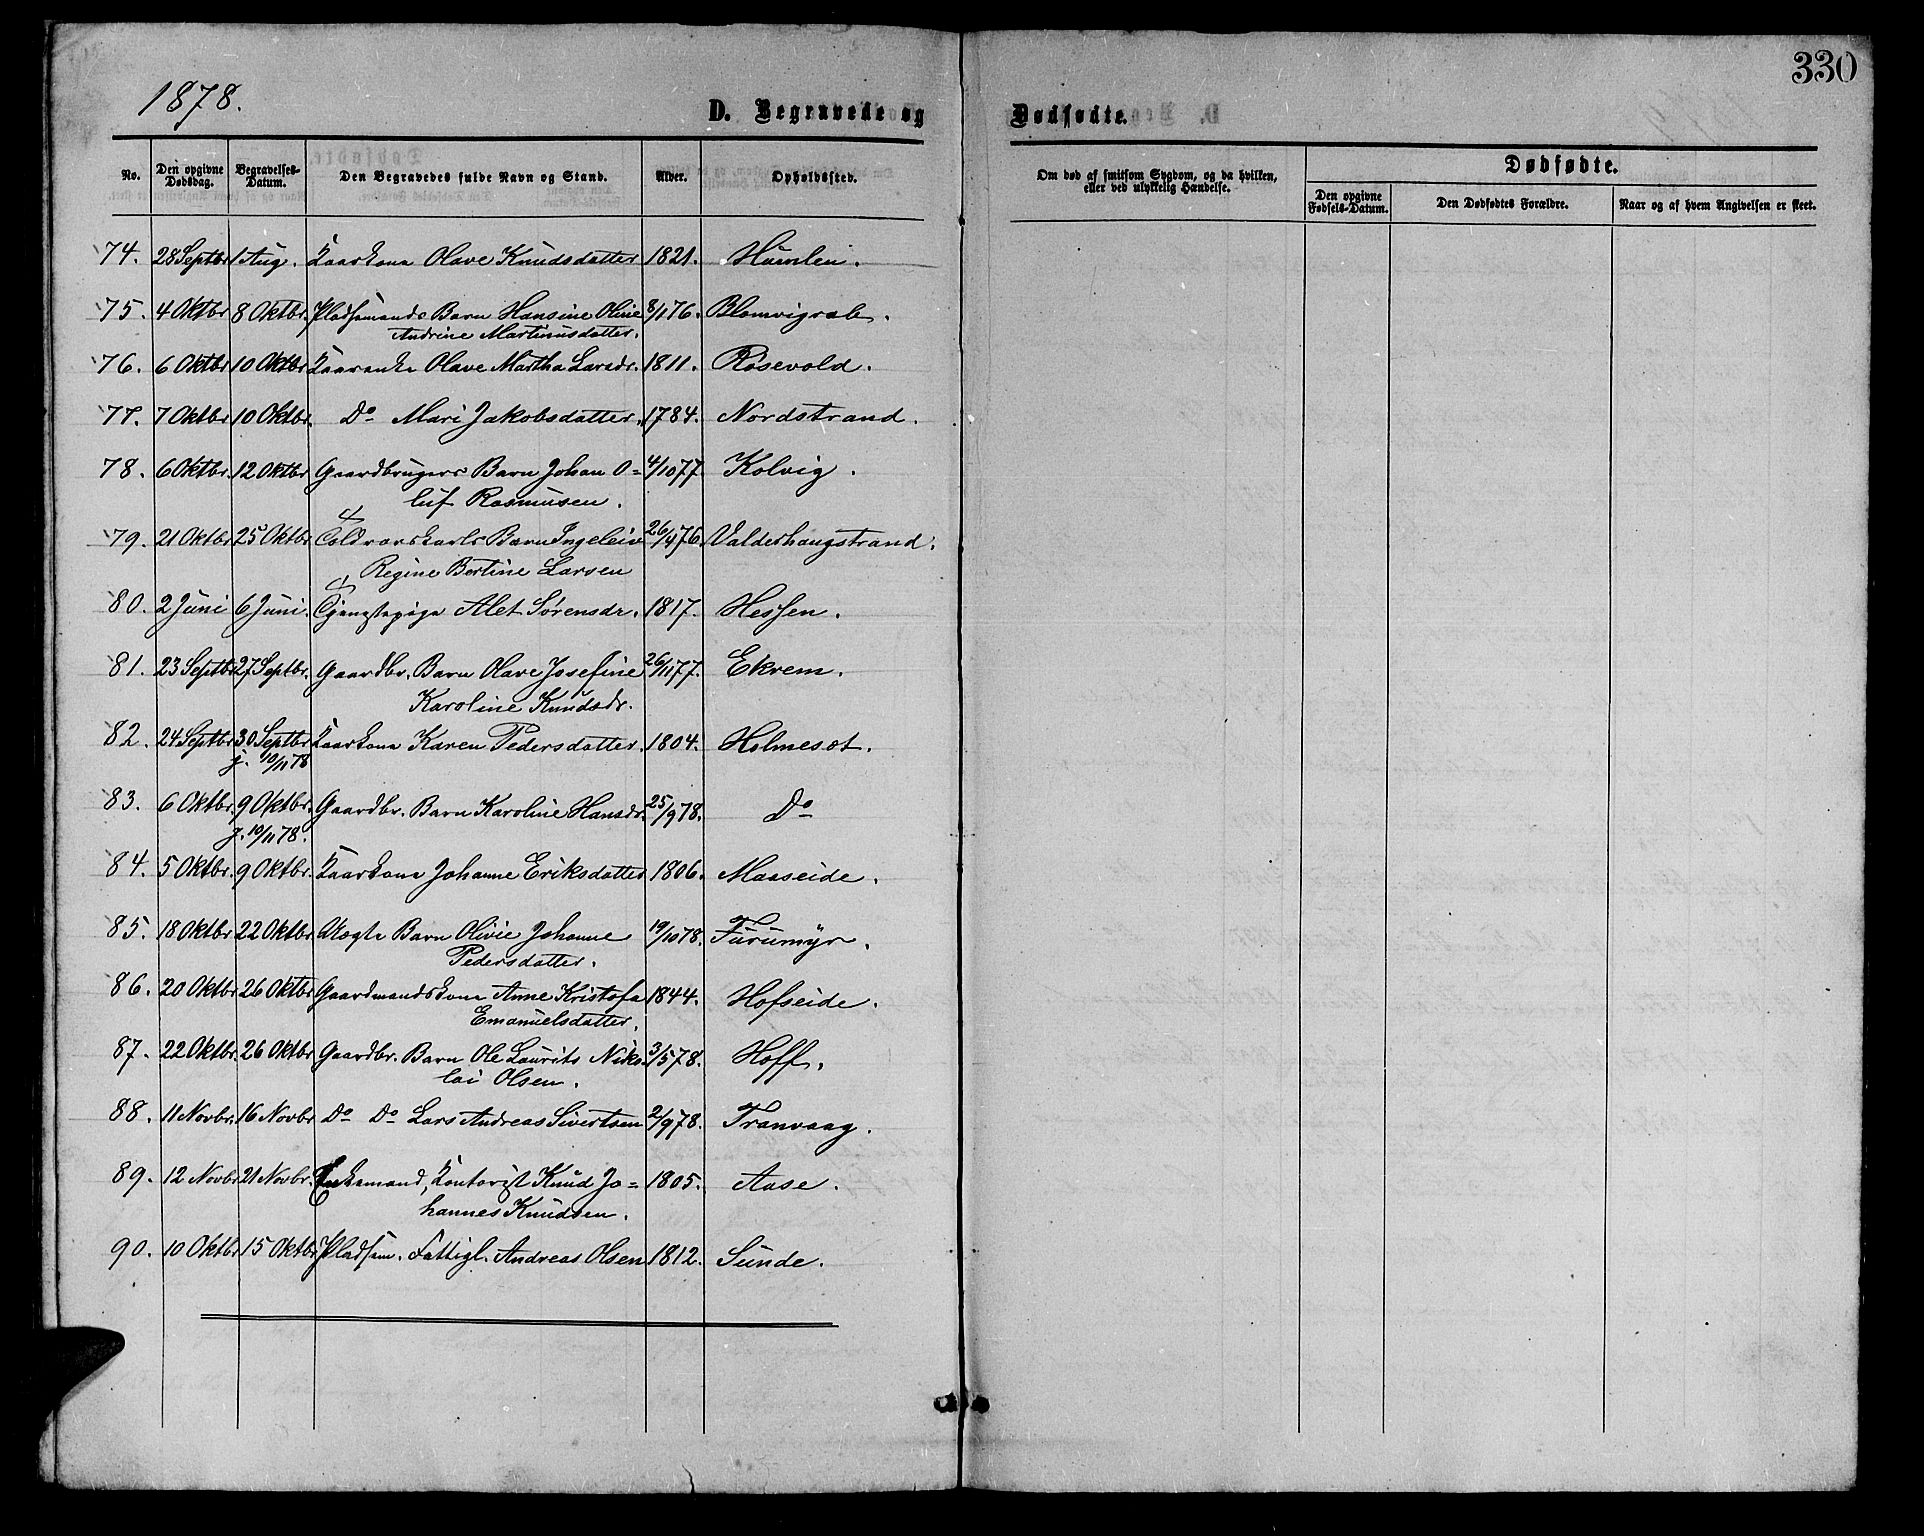 330
1878.
D. Begravede og Dødfødte.
No. Den opgivne Dødsdag. Begravelses-Datum. Den Begravedes fulde Navn og Stand. Alder. Opholdssted. Om død af smitsom Sygdom, og da hvilken, eller ved ulykkelig Hændelse. Dødfødte.
Den opgivne Fødsels-Datum. Den Dødfødtes Forældre. Naar og af hvem Angivelsen er skeet.
74. 28 Septbr 1 Aug. Kaarkona Olave Knudsdatter 1821. Humlen.
75. 4 Oktbr 8 Oktbr. Pladsemands Barn Hansine Oline 8/1 76. Blomvigrab.
Andrine Martinusdatter.
76. 6 Oktbr 10 Oktbr Kaarenke Olave Martha Larsdr. 1811. Røsevold.
77. 7 Oktbr 10 Oktbr. Do Mari Jakobsdatter. 1784. Nordstrand.
78. 6 Oktbr. 12 Oktbr Gaardbrugers Barn Johan O= 4/10 77 Kolvig.
luf Rasmusen.
79. 21 Oktbr 25 Oktbr Toldvarskarls Barn Ingeleiv 26/4 76 Valderhaugstrand.
Regine Bertine Larsen
80. 2 Juni 6 Juni. Tjenstepige Alet Sørensdr. 1817. Hessen.
81. 23 Septbr 27 Septbr. Gaardbr. Barn Olave Josefine 26/11 77. Ekrem.
Karoline Knudsdr.
82. 24 Septbr 30 Septbr Kaarkona Karen Pedersdatter. 1804. Holmeset.
j. 10/11 78
83. 6 Oktbr. 9 Oktbr. Gaardbr. Barn Karoline Hansdr. 25/9 78. Do
j. 10/11 78.
84. 5 Oktbr. 9 Oktbr. Kaarkona Johanne Eriksdatter 1806. Maaseide.
85. 18 Oktbr 22 Oktbr Uægte Barn Olivie Johanne 19/10 78. Furumyr.
Pedersdatter.
86. 20 Oktbr 26 Oktbr Gaardmandskona Anne Kristofa 1844. Hofseide.
Emanuelsdatter.
87. 22 Oktbr. 26 Oktbr Gaardbr. Barn Ole Laurits Niko 3/5 78. Hoff.
lai Olsen.
88. 11 Novbr. 16 Novbr Do Do Lars Andreas Sivertsen 2/9 78. Tranvaag.
89. 12 Novbr 21 Novbr. Enkemand, Kontorist Knud Jo= 1805. Aase.
hannes Knudsen.
90. 10 Oktbr 15 Oktbr Pladsem. Fattigl. Andreas Olsen 1812. Sunde.